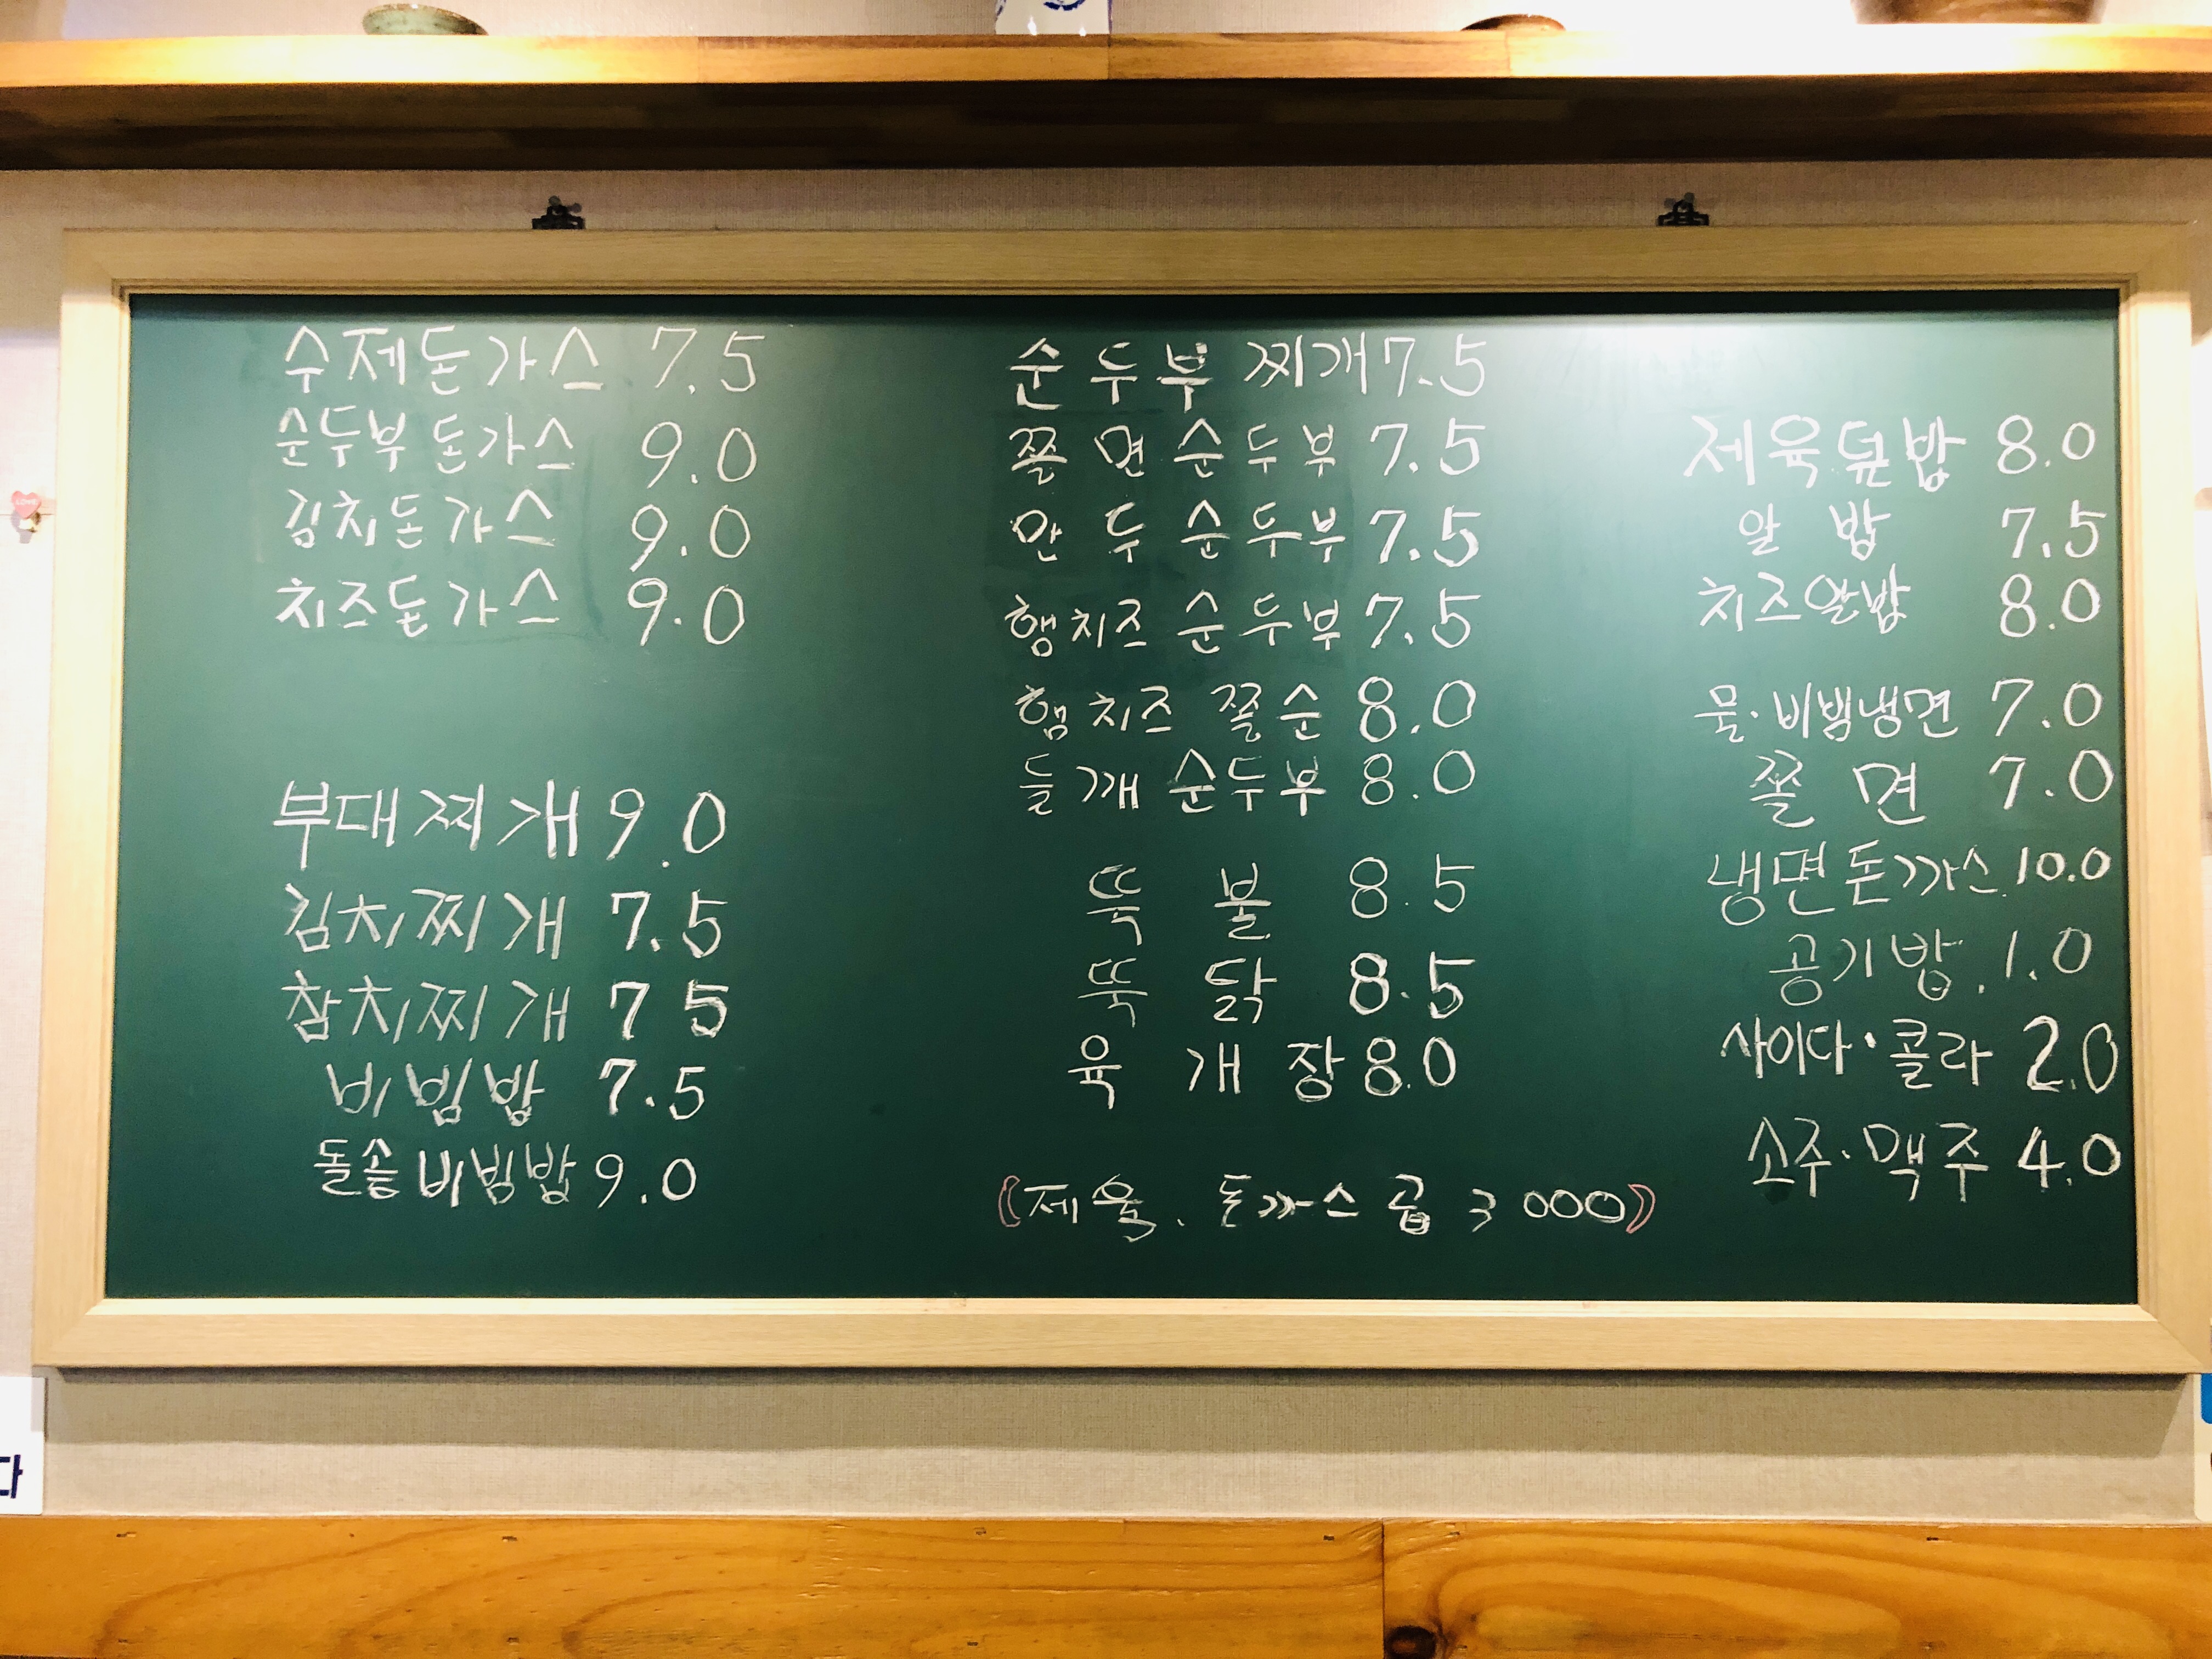 수제돈가스 7.5
순두부돈가스 9.0
김치돈가스 9.0
치즈돈가스 9.0
부대찌개 9.0
김치찌개 7.5
참치찌개 7 5
비빔밥 7.5
돌솥비빔밥 9.0
순두부찌개 7.5
쫄면순두부 7.5
만두순두부 7.5
햄치즈 순두부 7.5
햄치즈 쫄순 8.0
들깨 순두부 8.0
뚝 불 8.5
뚝 닭 8.5
육 개 장 8.0
((제육. 돈까스 곱 3000))
제육덮밥 8.0
알 밥 7.5
치즈알밥 8.0
물·비빔냉면 7.0
쫄 면 7.0
냉면돈까스 10.0
공기밥. 1.0
사이다·콜라 2.0
소주·맥주 4.0
다